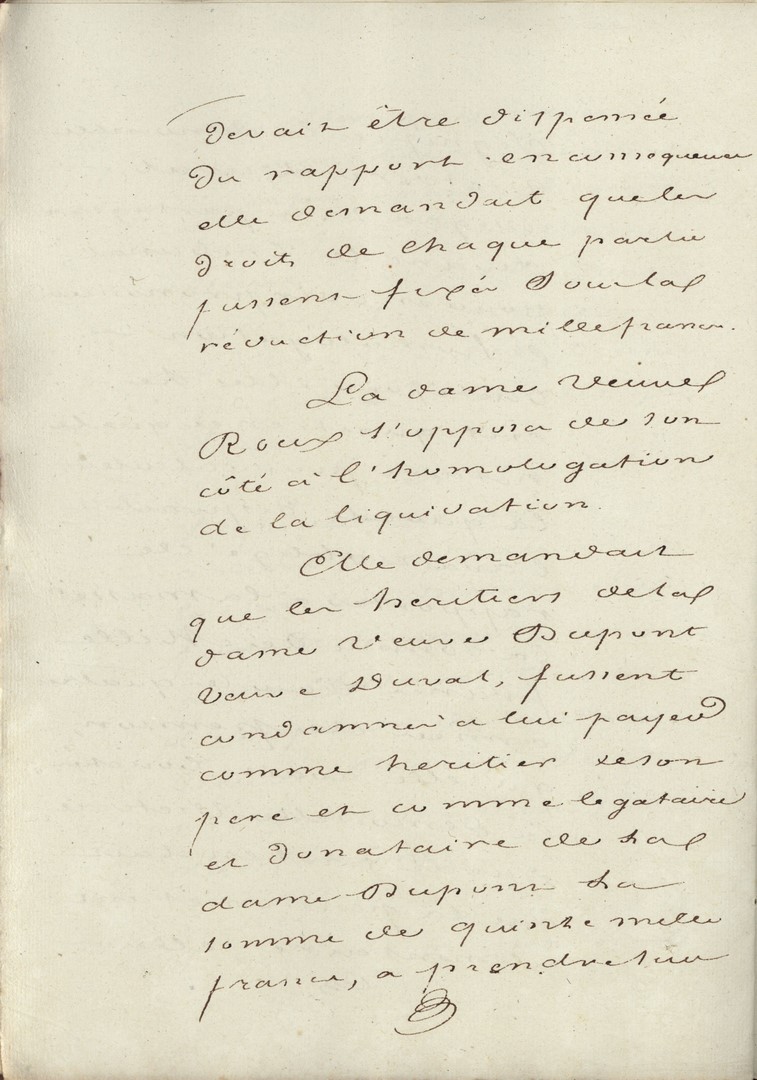 devait être dispensée
du rapport en consequence
elle demandait que les
droits de chaque partie
fussent fixés sous la
réduction de mille francs.
La dame veuve
Roux s'opposa de son
côté à l'homologation
de la liquidation.
Elle demandait
que les heritiers de la
dame veuve Dupont
veuve Duval, fussent
condamnés a lui payer
comme heritier de son
pere et comme legataire
et donataire de la
dame Dupont la
somme de quinze mille
francs, a prendre sur